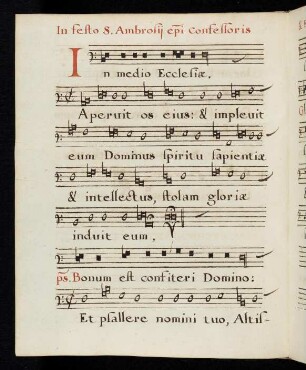 In festo S. Ambrosij ep̄i Confessoris
In medio Ecclesiæ.
Aperuit os eius: & impleuit
eum Dominus spiritu sapientiæ
& intellectus, stolam gloriæ
induit eum.
ps. Bonum est confiteri Domino:
Et psallere nomini tuo, Altis-